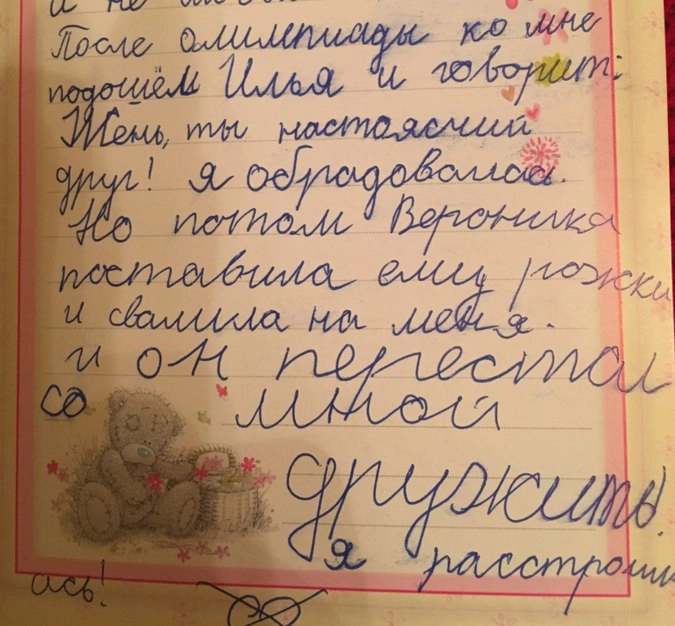 После олимпиады ко мне
подошём Илья и говорит:
Жень, ты настоясчий
друг! я обрадовалась.
Но потом Вероника
поставила ему рожки
и свалила на меня.
и он перестал
со мной
дружить!
я расстрои
ась!